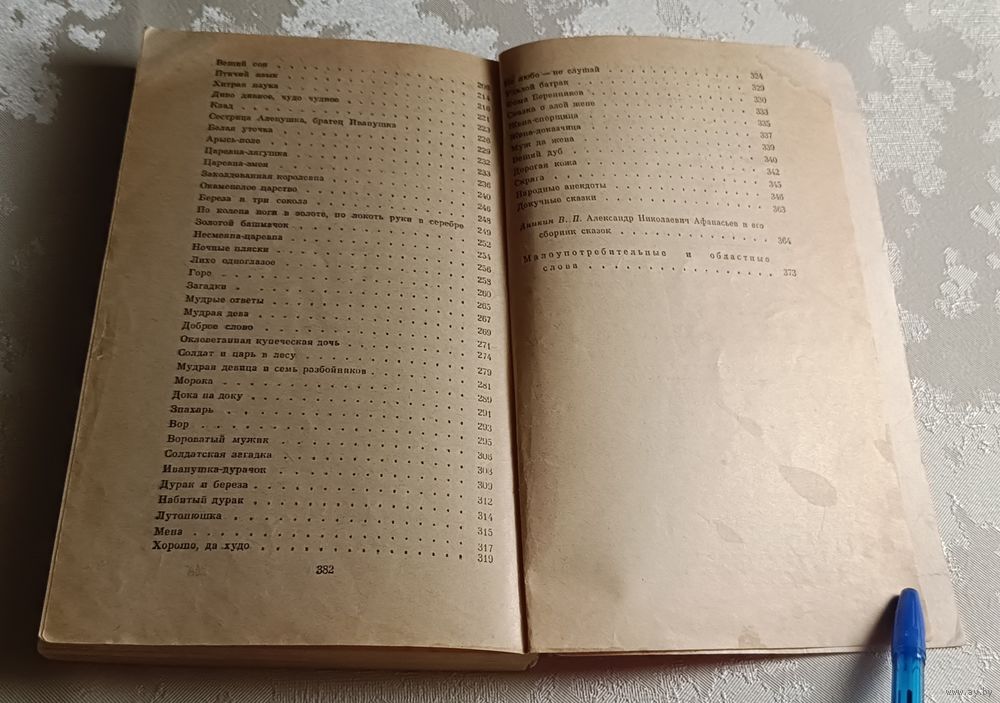 Вещий сон
Птичий язык
Хитрая наука 216
Диво дивное, чудо чудное 221
Клад 223
Сестрица Аленушка, братец Иванушка 226
Белая уточка 229
Арысь-поле 232
Царевна-лягушка 233
Царевна-змея 236
Заколдованная королевна 240
Окаменелое царство 246
Береза и три сокола 248
По колена ноги в золоте, по локоть руки в серебре 249
Золотой башмачок 252
Несмеяна-царевна 254
Ночные пляски 256
Лихо одноглазое 258
Горе 260
Загадки 265
Мудрые ответы 267
Мудрая дева 269
Доброе слово 271
Оклеветанная купеческая дочь 274
Солдат и царь в лесу 279
Мудрая девица и семь разбойников 281
Морока 289
Дока на доку 291
Знахарь 293
Вор 295
Вороватый мужик 306
Солдатская загадка 308
Иванушка-дурачок 309
Дурак и береза 312
Набитый дурак 314
Лутонюшка 315
Мена 317
Хорошо, да худо 319
382
Не любо — не слушай 324
Удалой батрак 329
Фома Беренников 330
Сказка о злой жене 333
Жена-спорщица 335
Жена-доказчица 337
Муж да жена 339
Вещий дуб 340
Дорогая кожа 342
Скряга 345
Народные анекдоты 346
Докучные сказки 363
Аникин В. П. Александр Николаевич Афанасьев и его
сборник сказок 364
Малоупотребительные и областные
слова 373
www.ay.by